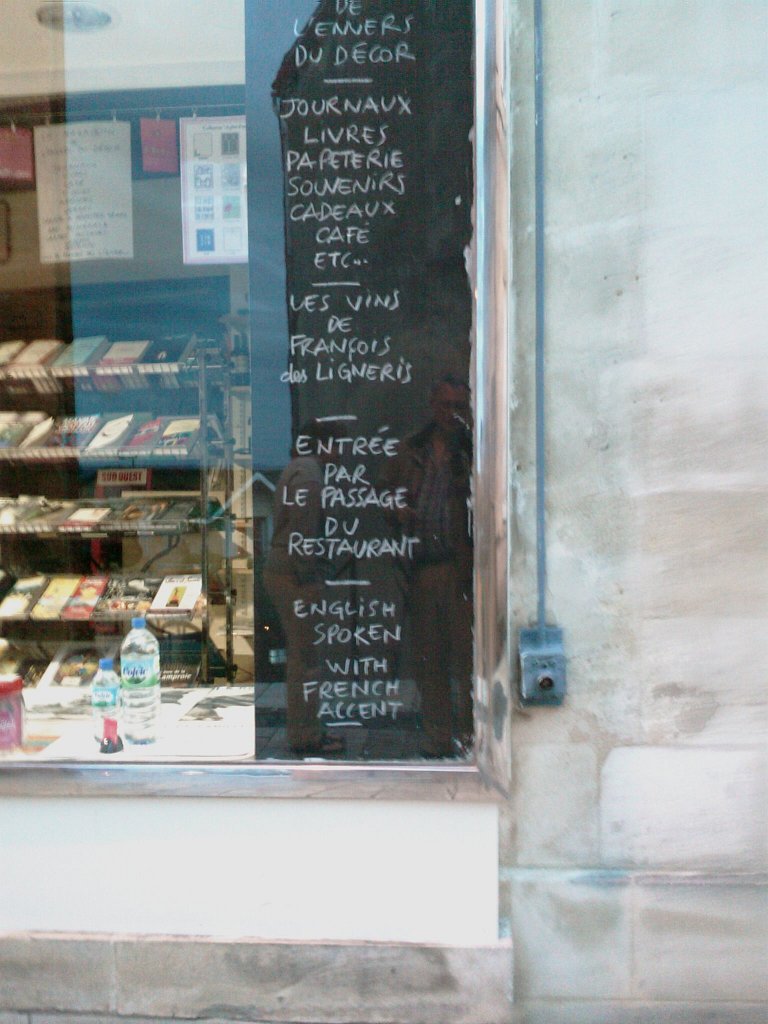 DE
L'ENVERS
DU DÉCOR
JOURNAUX
LIVRES
PAPETERIE
SOUVENIRS
CADEAUX
CAFÉ
ETC...
LES VINS
DE
FRANÇOIS
des LIGNERIS
ENTRÉE
PAR
LE PASSAGE
DU
RESTAURANT
ENGLISH
SPOKEN
WITH
FRENCH
ACCENT
SUD OUEST
Volvic
Lamproie